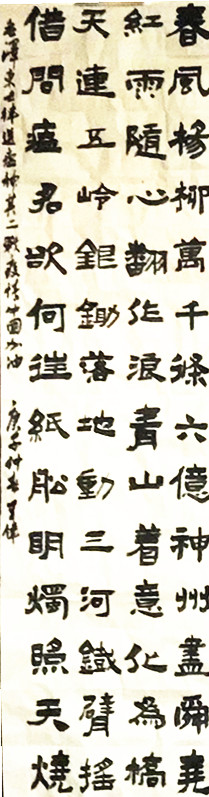 春風楊柳萬千條六億神州盡舜堯
紅雨隨心翻作浪青山着意化為橋
天連五岭銀鋤落地動三河鐵臂搖
借問瘟君欲何往紙船明燭照天燒
毛澤東七律送瘟神其二戰疫情中国加油 庚子